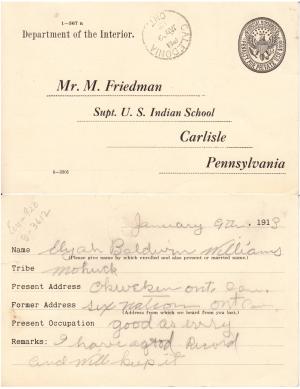 1—567 a
Department of the Interior.
CALEDONIA
ONT.
Mr. M. Friedman
Supt. U. S. Indian School
Carlisle
Pennsylvania
6—3905
January 9th 1913
Name Elijah Baldwin Williams
(Please give name by which enrolled and also present or married name.)
Tribe Mohuck
Present Address Ohweken ont Can.
Former Address Six nation ont Can
(Address from which we heard from you last.)
Present Occupation good as evry
Remarks: I have a good Record
and will keep it